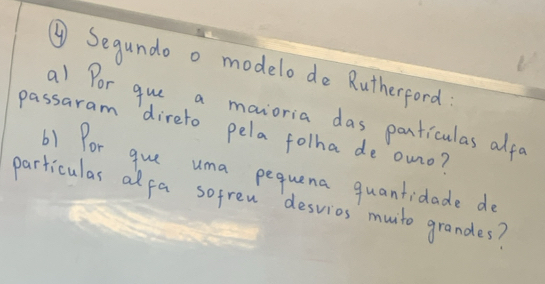 ④ Segundo o modelo de Rutherford:
a) Por que a maioria das partículas alfa
passaram direto pela folha de ouro?
b) Por que uma pequena quantidade de
partículas alfa sofreu desvios muito grandes?